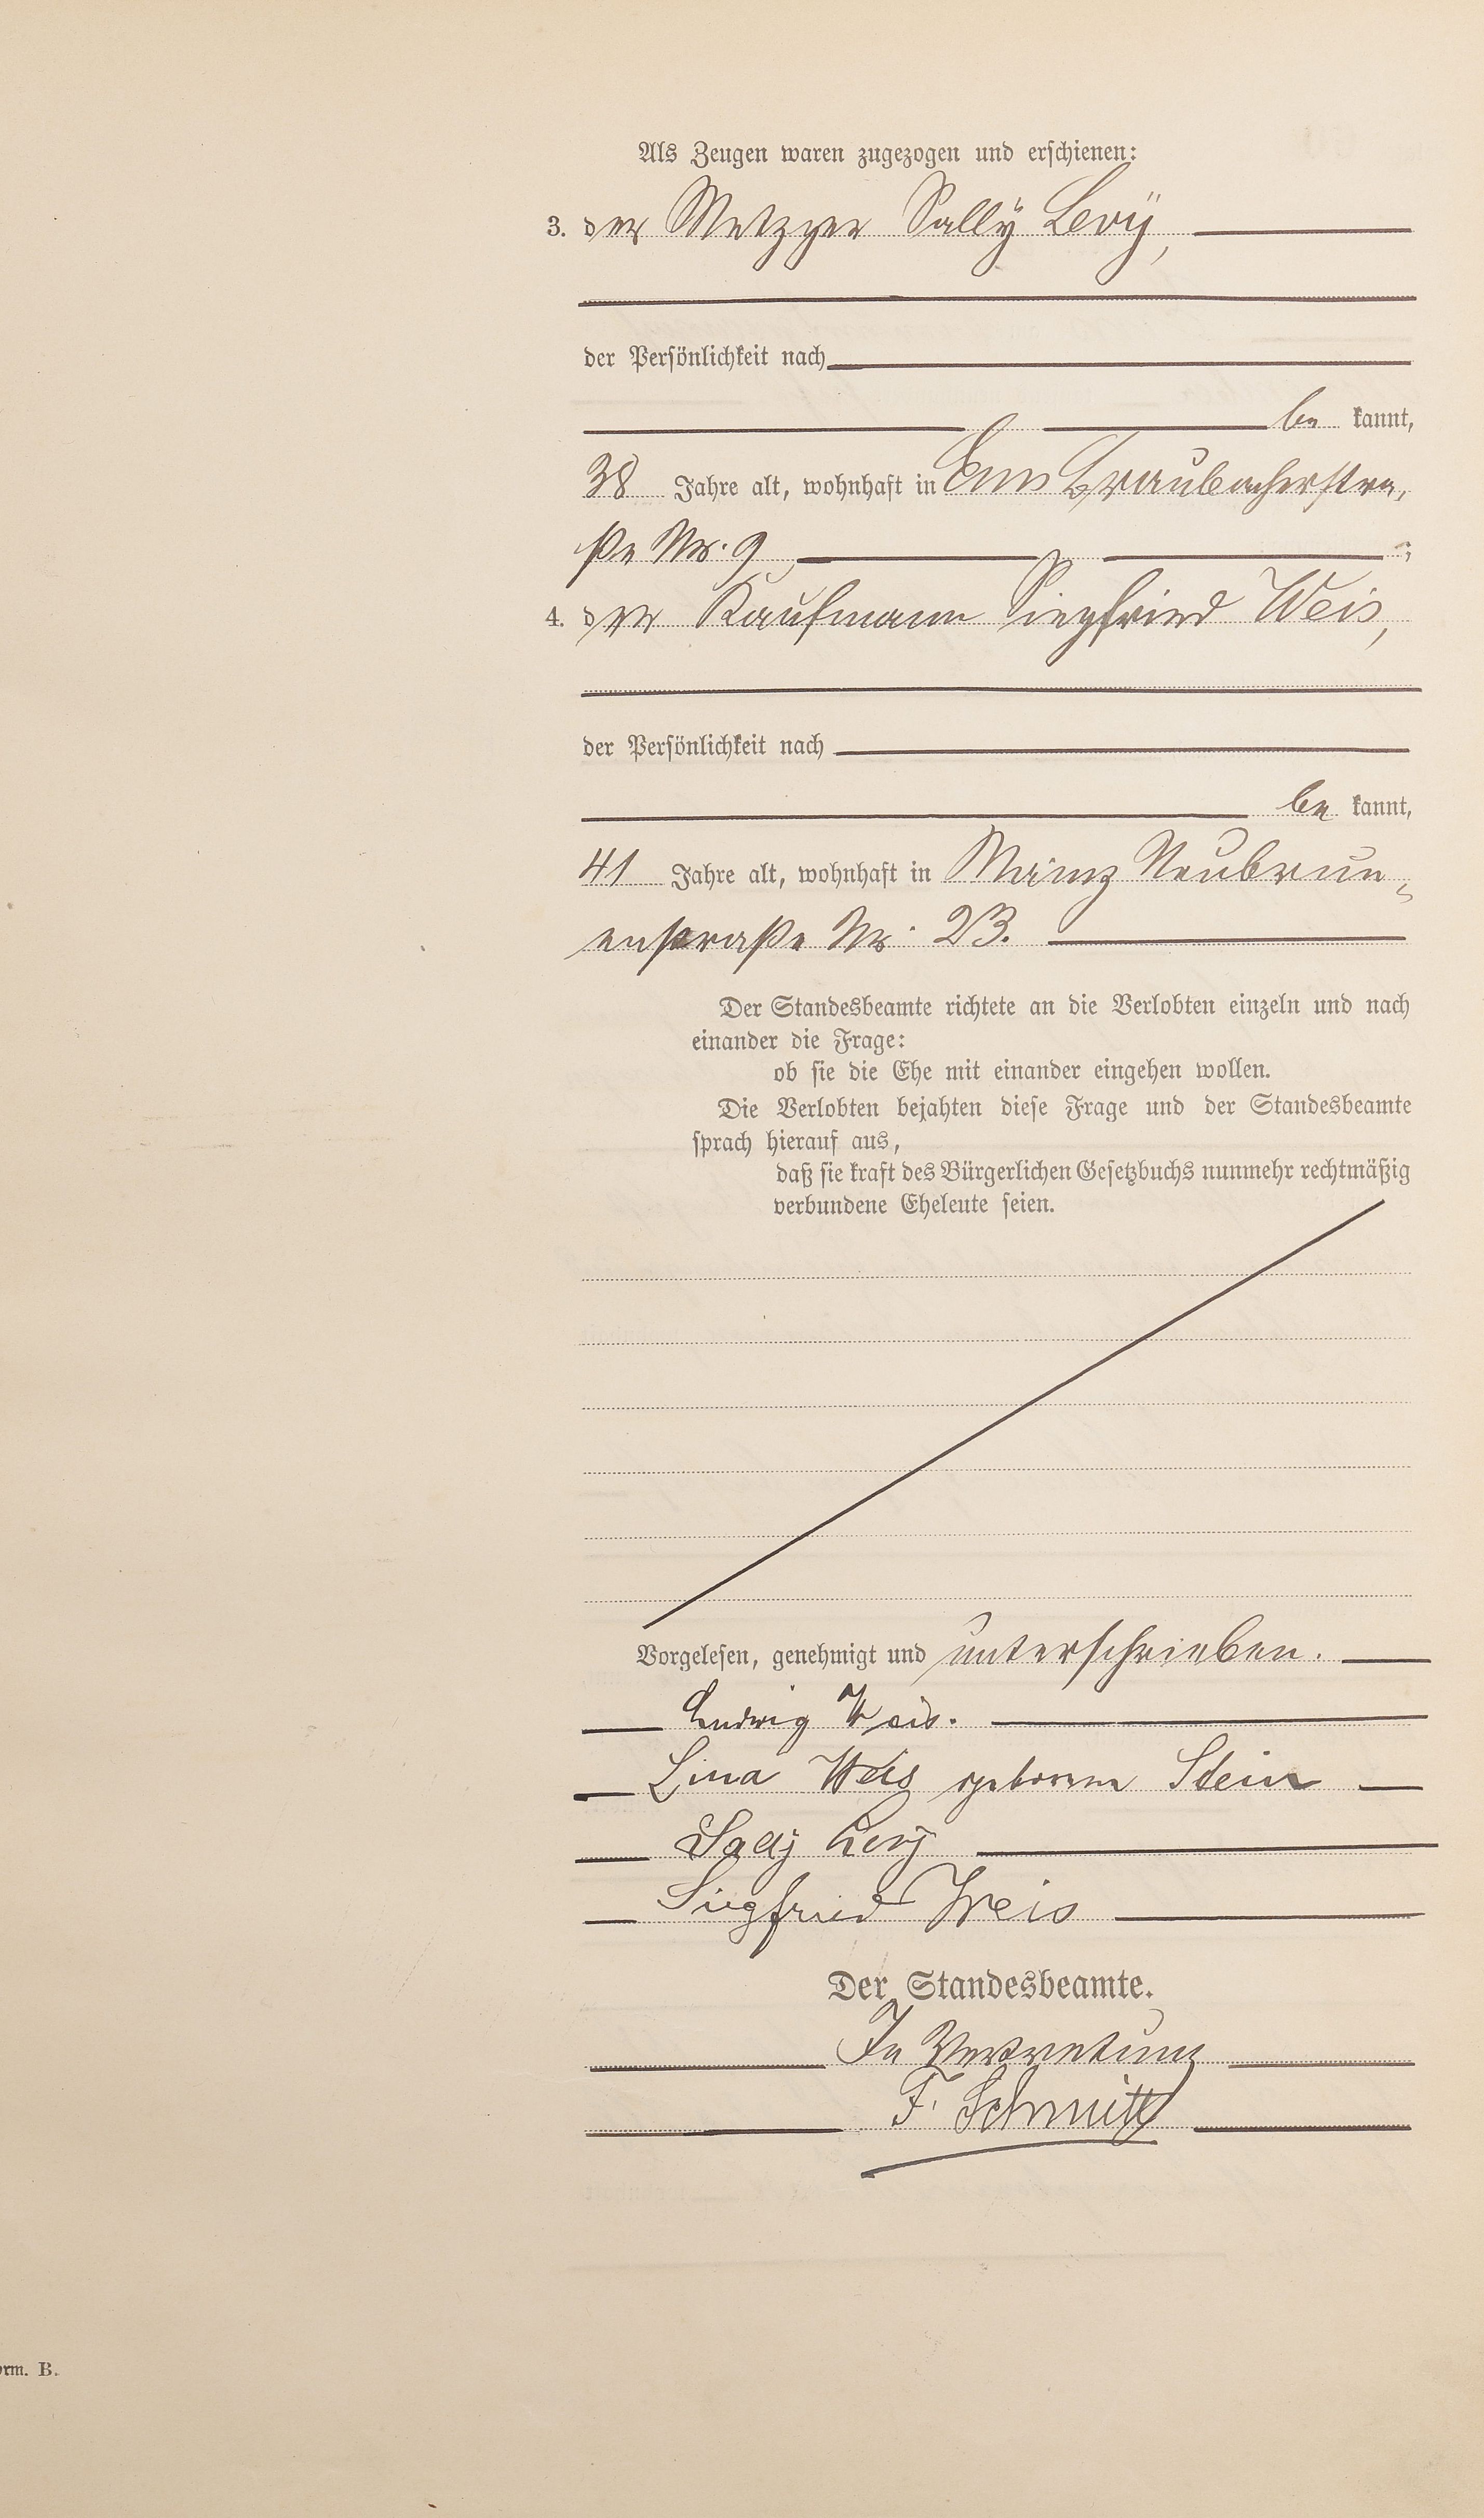 Als Zeugen waren zugezogen und erschienen:
3. der Metzger Sally Levÿ,
der Persönlichkeit nach
be kannt,
38 Jahre alt, wohnhaft in Ems Braubacherstra,
ße Nr. 9, ;
4. der Kaufmann Siegfried Weis,
der Persönlichkeit nach
be kannt,
41 Jahre alt, wohnhaft in Mainz Neubrun,
enstraße Nr. 23.
Der Standesbeamte richtete an die Verlobten einzeln und nach
einander die Frage:
ob sie die Ehe mit einander eingehen wollen.
Die Verlobten bejahten diese Frage und der Standesbeamte
sprach hierauf aus,
daß sie kraft des Bürgerlichen Gesetzbuchs nunmehr rechtmäßig
verbundene Eheleute seien.
Vorgelesen, genehmigt und unterschrieben.
Ludwig Weis.
Lina Weis geborene Stein
Sally Levy
Siegfried Weis
Der Standesbeamte.
In Vertretung
F. Schmitt
orm. B.